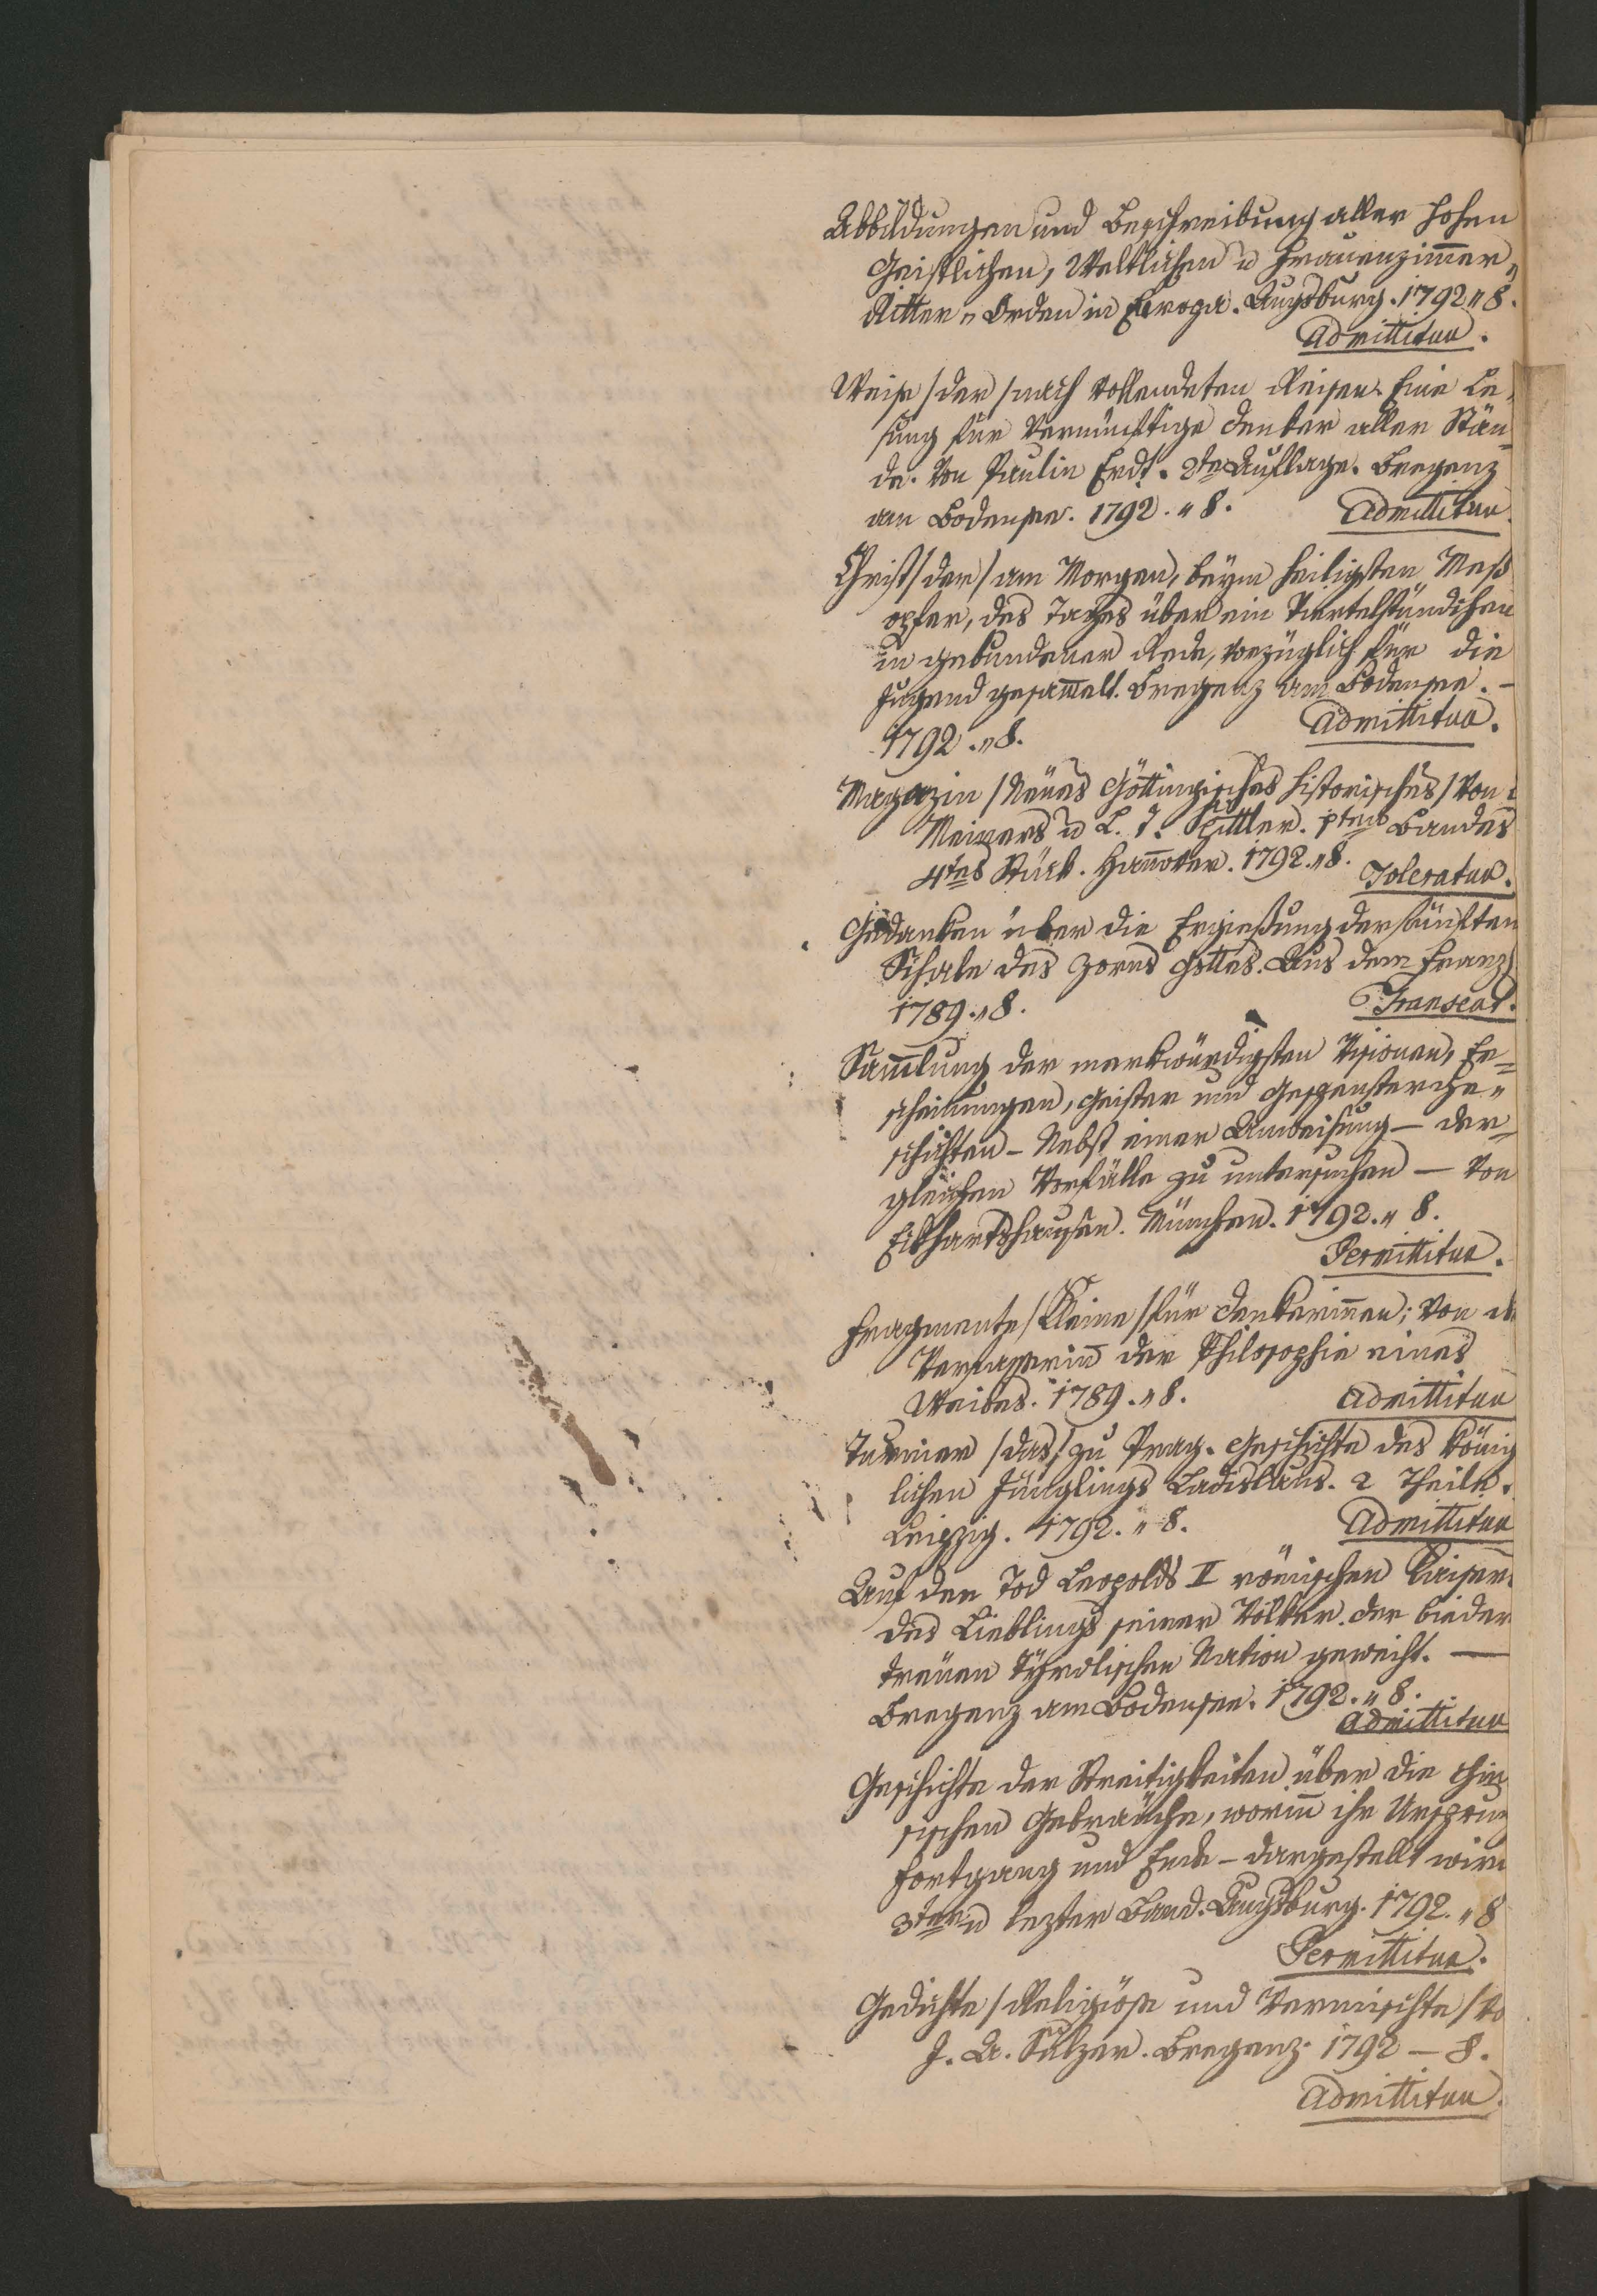 Abbildungen und Beschreibung aller hohen
Geistlichen, Weltlichen u Frauenzimmer„
Ritter„Orden in Europa. Augsburg. 1792 „ 8.
Admittitur.
Weise /der/ nach vollendeten Reisen. Eine Le„
sung für Vernünftige Denker aller Stän„
de. Von Paulin Erdt. 2te Auflage. Bregenz
am Bodensee. 1792. „ 8.
Admittitur.
Christ /der/ am Morgen, beym heiligsten Meß
opfer, des Tages über ein Viertelstündchen
in gebundener Rede, vorzüglich für die
Jugend gesam̄elt. Bregenz am Bodensee. –
1792. „ 8.
Admittitur.
Magazin /Neues Göttingisches historisches/ Von
Meiners u L. T. Spittler. 1tens Bandes
4tes Stück. Han̄over. 1792. „ 8.
Toleratur.
Gedanken über die Ergießung der fünften
Schale des Zorns Gottes. Aus dem Franz.
1789. „ 8.
Transeat.
Sam̄lung der merkwürdigsten Visionen, Er„
scheinungen, Geister und Gespensterge„
schichten – Nebst einer Anweisung – der„
gleichen Vorfälle zu untersuchen – Von
Eckhartshausen. München. 1792. „ 8.
Permittitur.
Fragmente /Kleine/ für Denkerin̄en; Von d
Verfasserin̄ der Philosophie eines
Weibes. 1789. „ 8.
Admittitur
Turnier /das/ zu Prag. Geschichte des König
lichen Jünglings Ladislaus. 2 Theile.
Leipzig. 1792. „ 8.
Admittitur
Auf den Tod Leopolds II römischen Kaisers
des Lieblings seiner Völker. Der bieder
treuen Tyrolischen Nation geweiht. —
Bregenz am Bodensee. 1792. „ 8.
Admittitur
Geschichte der Streitigkeiten über die chine
sischen Gebräuche, worin̄ ihr Ursprun
Fortgang und Ende – dargestellt wird
3ter u lezter Band. Augsburg. 1792. „ 8
Permittitur.
Gedichte /Religiöse und Vermischte/ Vo
J. A. Sulzer. Bregenz. 1792 – 8.
Admittitur.